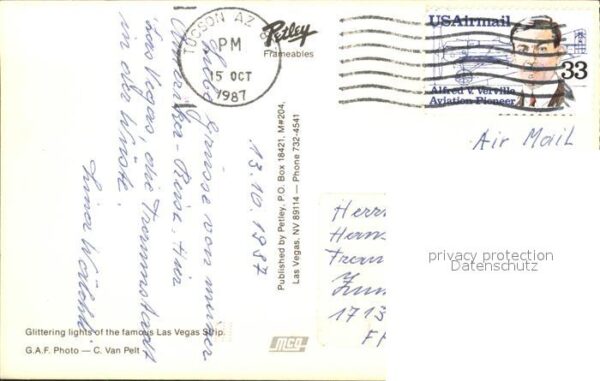 TUCSON AZ
PM
15 OCT
1987
Petley
Frameables
USAirmail
33
Alfred V. Verville
Aviation Pioneer
Air Mail
13.10.1987
Liebe Grüsse von meiner
Amerika-Reise. Hier
Las Vegas, die Traumstadt
in der Wüste.
Published by Petley, P.O. Box 18421, M#204,
Las Vegas, NV 89114 — Phone 732-4541
Herr
Hans
1713
privacy protection
Datenschutz
Glittering lights of the famous Las Vegas Strip.
G.A.F. Photo — C. Van Pelt